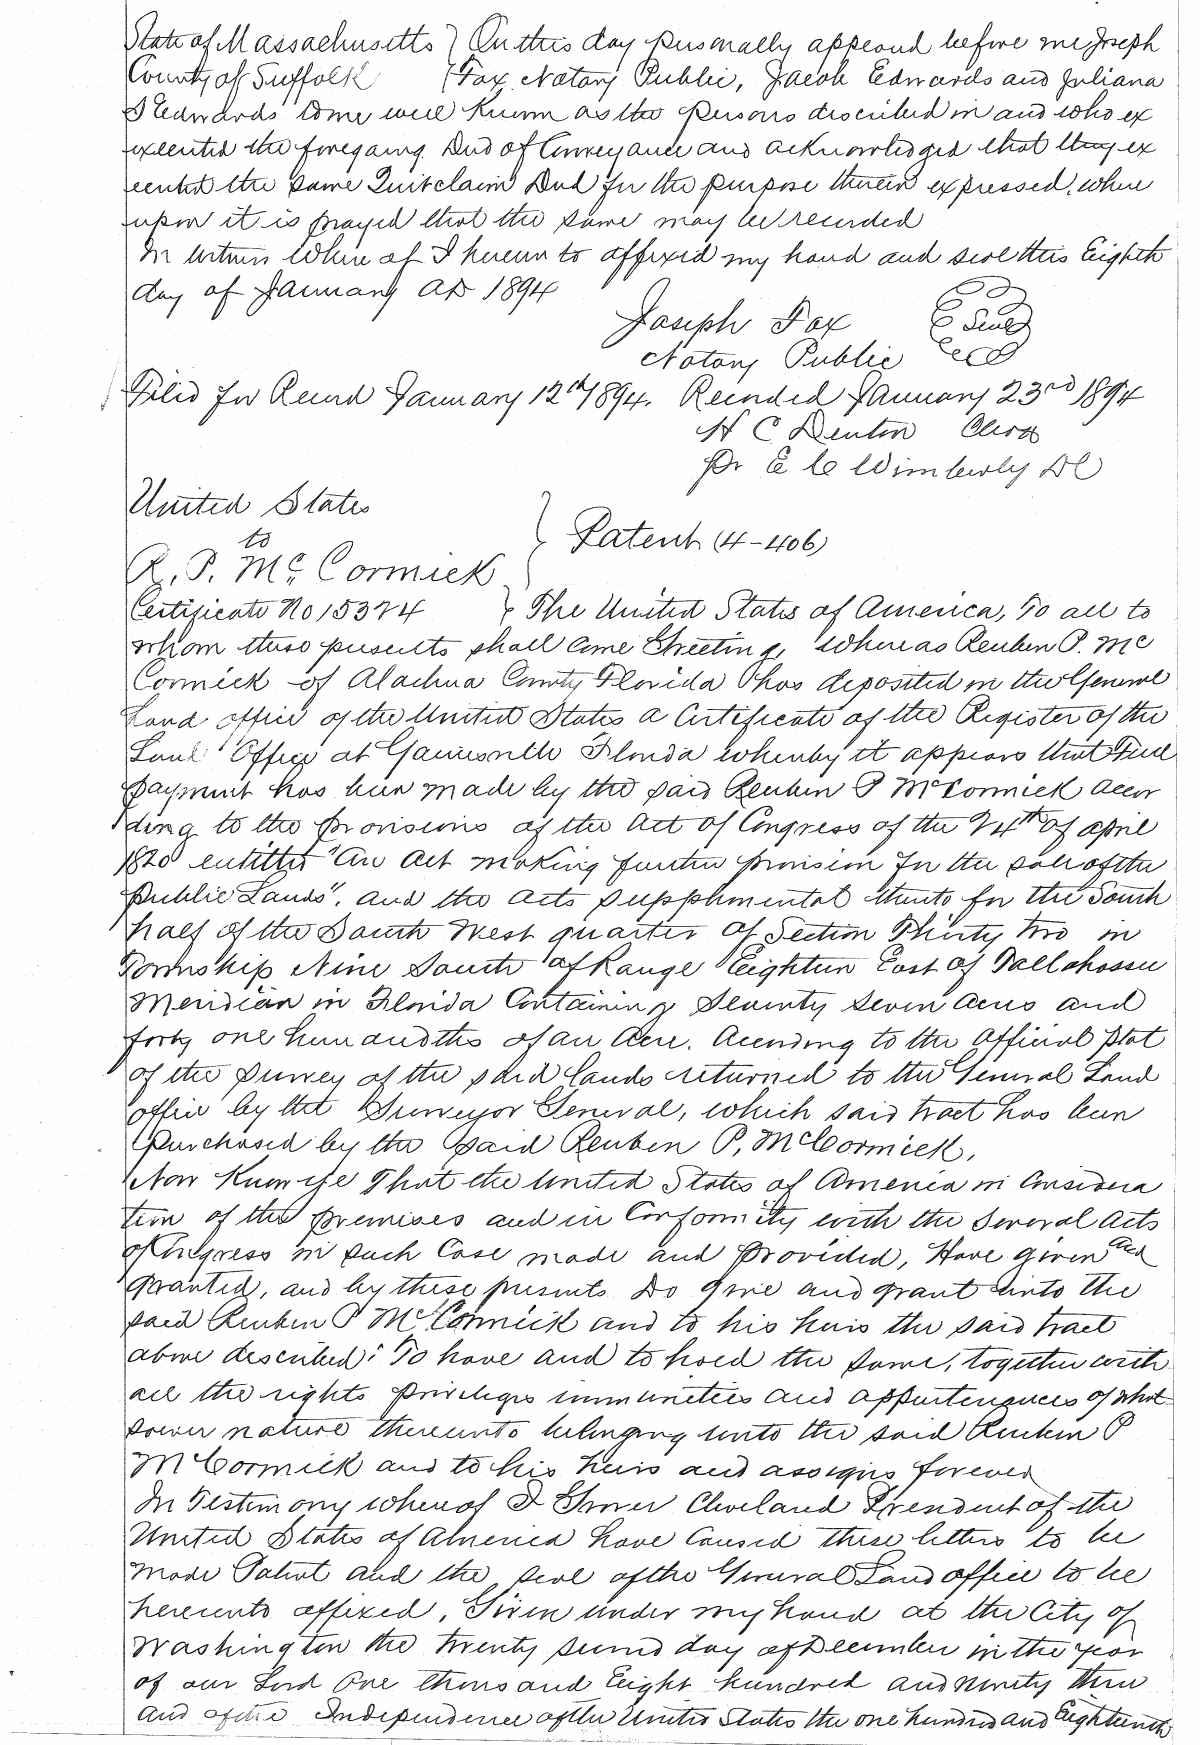 State of Massachusetts } On this day personally appeard before me Joseph
County of Suffolk { Fox, Notary Public, Jacob Edwards and Juliana
S Edwards to me well known as the persons described in and who ex
executed the foregoing Deed of Conveyance and acknowledged that they ex
ecuted the same Quitclaim Deed for the purpose therein expressed, where
upon it is prayed that the same may be recorded
In witness where of I hereun to affixed my hand and seal this Eighth
day of January AD 1894
Joseph Fox Seal
Notary Public
Filed for Record January 12th 1894. Recorded January 23rd 1894
H C Denton Clerk
Pr E C Wimberly DC
United States
to } Patent (4-406)
R. P. Mc Cormick
Certificate No 15374 } The United States of America, To all to
whom these presents shall come Greeting, Whereas Reuben P. Mc
Cormick of Alachua County Florida has deposited in the General
Land office of the United States a Certificate of the Register of the
Land Office at Gainesville Florida whereby it appears that Full
payment has been made by the said Reuben P McCormick accor
ding to the provisions of the Act of Congress of the 24th of April
1820 entitled "An Act making further provision for the sale of the
Public Lands", and the Acts supplimental thereto for the South
half of the South West quarter of Section Thirty two in
Township Nine South of Range Eighteen East of Tallahassee
Meridian in Florida Containing Seventy seven acres and
forty one hunandths of an Acre. According to the Official Plat
of the survey of the said Lands returned to the General Land
office by the Surveyor General, which said tract has been
purchased by the said Reuben P. McCormick.
Now Know ye That the United States of America in Considera
tion of the premises and in Conformity with the Several Acts
of Congress in such Case made and provided, Have given and
granted, and by these presents Do give and grant unto the
said Reuben P McCormick and to his heirs the said tract
above described: To have and to hold the same, together with
all the rights privileges immunities and appurtenances of what
soever nature thereunto belonging unto the said Reuben P
McCormick and to his heirs and assigns forever
In Testimony whereof I Grover Cleveland President of the
United States of America have caused these letters to be
made Patent and the seal of the General Land office to be
hereunto affixed. Given under my hand at the City of
Washington the twenty second day of December in the year
of our Lord One thousand Eight hundred and ninety three
and of the Independence of the United States the one hundred and Eighteenth